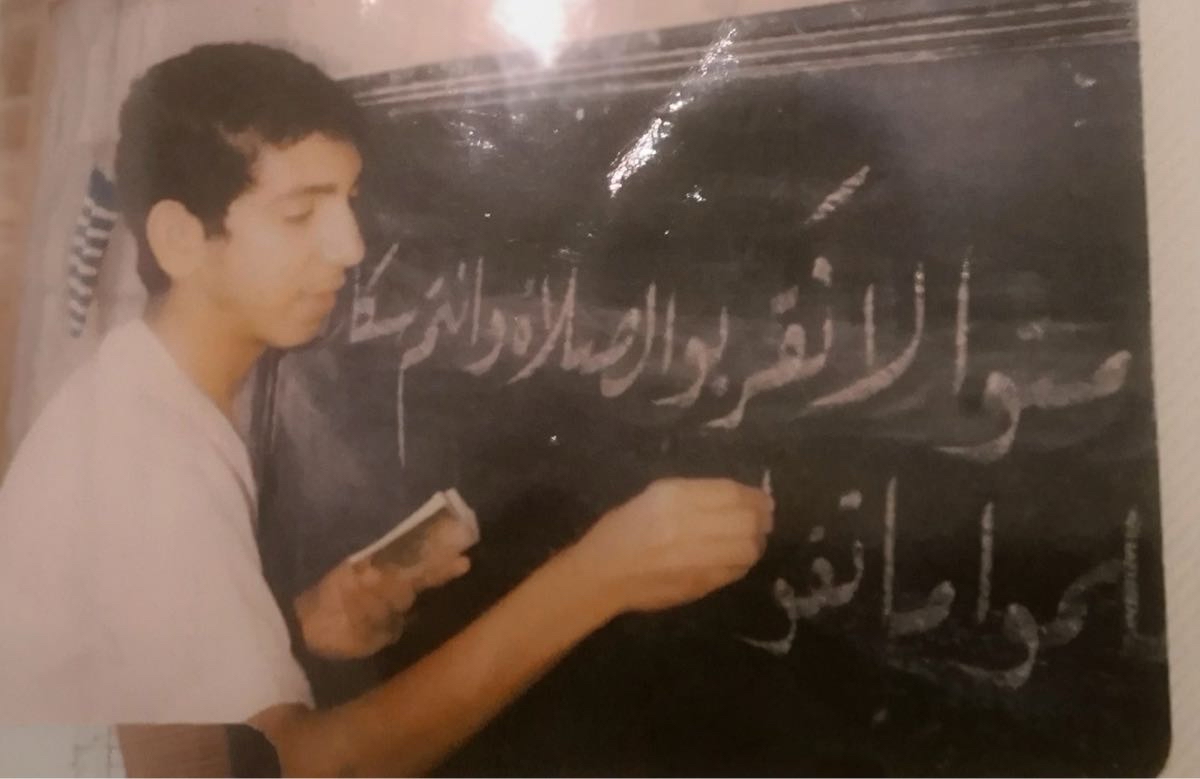 منوا لا تقربوا الصلاه وانتم سكا
لموا ما تقو